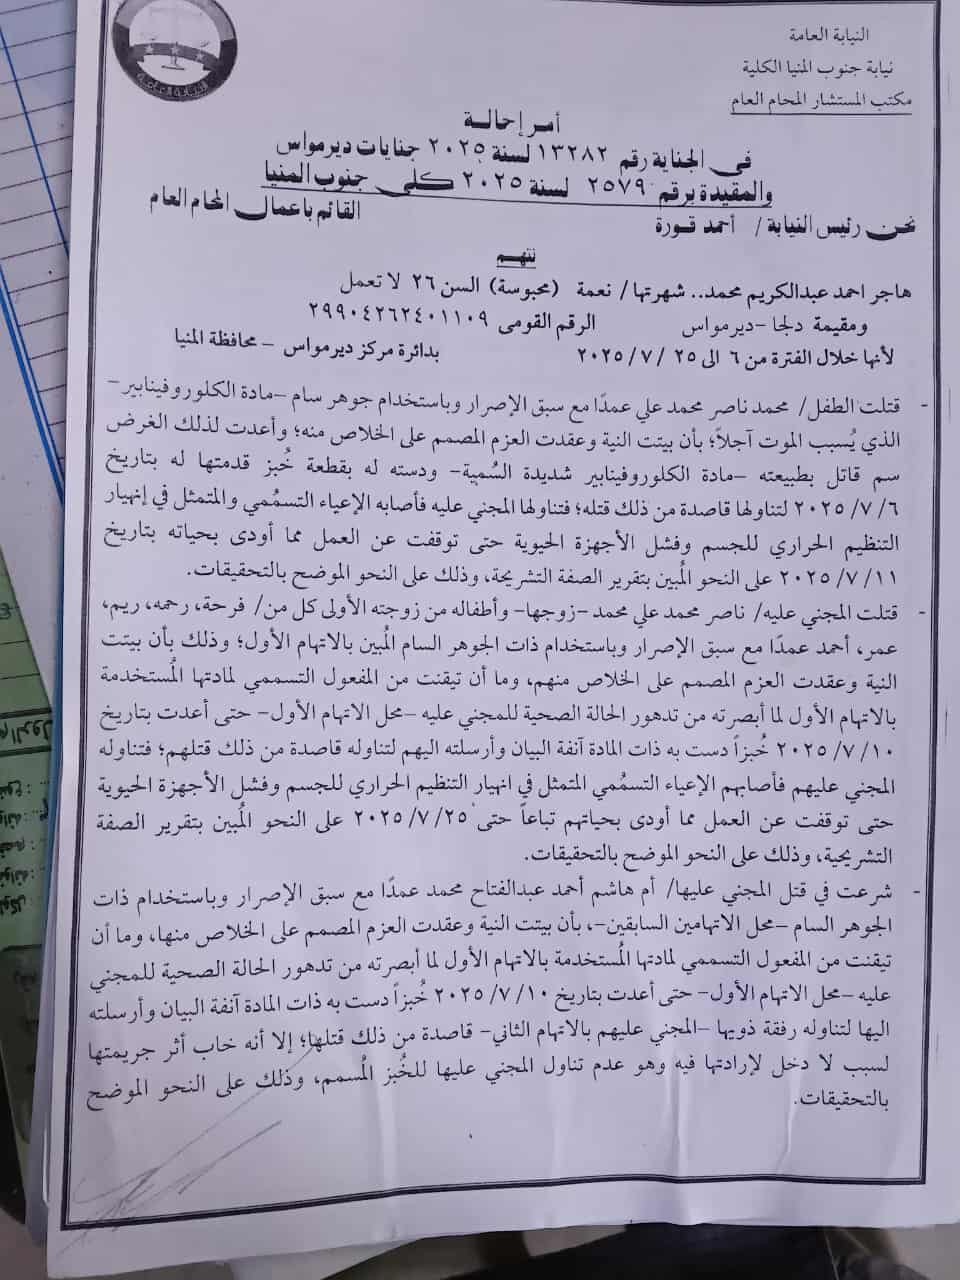 النيابة العامة
نيابة جنوب المنيا الكلية
مكتب المستشار المحام العام
النيابة العامة
أمر إحالة
في الجناية رقم ١٣٢٨٢ لسنة ٢٠٢٥ جنايات ديرمواس
والمقيدة برقم ٢٥٧٩ لسنة ٢٠٢٥ كلى جنوب المنيا
نحن رئيس النيابة / أحمد قورة القائم باعمال المحام العام
نتهم
هاجر احمد عبدالكريم محمد.. شهرتها/ نعمة (محبوسة) السن ٢٦ لا تعمل
ومقيمة دلجا -ديرمواس الرقم القومى ٢٩٩٠٤٢٦٢٤٠١١٠٩
لأنها خلال الفترة من ٦ الى ٢٥ /٧ /٢٠٢٥ بدائرة مركز ديرمواس – محافظة المنيا
- قتلت الطفل/ محمد ناصر محمد علي عمدًا مع سبق الإصرار وباستخدام جوهر سام –مادة الكلوروفينابير–
الذي يُسبب الموت آجلاً؛ بأن بيتت النية وعقدت العزم المصمم على الخلاص منه؛ وأعدت لذلك الغرض
سم قاتل بطبيعته –مادة الكلوروفينابير شديدة السُمية- ودسته له بقطعة خُبز قدمتها له بتاريخ
٦ /٧ /٢٠٢٥ لتناولها قاصدة من ذلك قتله؛ فتناولها المجني عليه فأصابه الإعياء التسمُمي والمتمثل في إنهيار
التنظيم الحراري للجسم وفشل الأجهزة الحيوية حتى توقفت عن العمل مما أودى بحياته بتاريخ
١١ /٧ /٢٠٢٥ على النحو المُبين بتقرير الصفة التشريحة، وذلك على النحو الموضح بالتحقيقات.
- قتلت المجني عليه/ ناصر محمد علي محمد -زوجها- وأطفاله من زوجته الأولى كل من/ فرحة، رحمه، ريم،
عمر، أحمد عمدًا مع سبق الإصرار وباستخدام ذات الجوهر السام المُبين بالاتهام الأول؛ وذلك بأن بيتت
النية وعقدت العزم المصمم على الخلاص منهم، وما أن تيقنت من المفعول التسممي لمادتها المُستخدمة
بالاتهام الأول لما أبصرته من تدهور الحالة الصحية للمجني عليه –محل الاتهام الأول- حتى أعدت بتاريخ
١٠ /٧ /٢٠٢٥ خُبزاً دست به ذات المادة آنفة البيان وأرسلته اليهم لتناوله قاصدة من ذلك قتلهم؛ فتناوله
المجني عليهم فأصابهم الإعياء التسمُمي المتمثل في انهيار التنظيم الحراري للجسم وفشل الأجهزة الحيوية
حتى توقفت عن العمل مما أودى بحياتهم تباعاً حتى ٢٥ /٧ /٢٠٢٥ على النحو المُبين بتقرير الصفة
التشريحية، وذلك على النحو الموضح بالتحقيقات.
- شرعت في قتل المجني عليها/ أم هاشم أحمد عبدالفتاح محمد عمدًا مع سبق الإصرار وباستخدام ذات
الجوهر السام –محل الاتهامين السابقين-، بأن بيتت النية وعقدت العزم المصمم على الخلاص منها، وما أن
تيقنت من المفعول التسممي لمادتها المُستخدمة بالاتهام الأول لما أبصرته من تدهور الحالة الصحية للمجني
عليه –محل الاتهام الأول- حتى أعدت بتاريخ ١٠ /٧ /٢٠٢٥ خُبزاً دست به ذات المادة آنفة البيان وأرسلته
اليها لتناوله رفقة ذويها –المجني عليهم بالاتهام الثاني- قاصدة من ذلك قتلها؛ إلا أنه خاب أثر جريمتها
لسبب لا دخل لإرادتها فيه وهو عدم تناول المجني عليها للخُبز المُسمم، وذلك على النحو الموضح
بالتحقيقات.